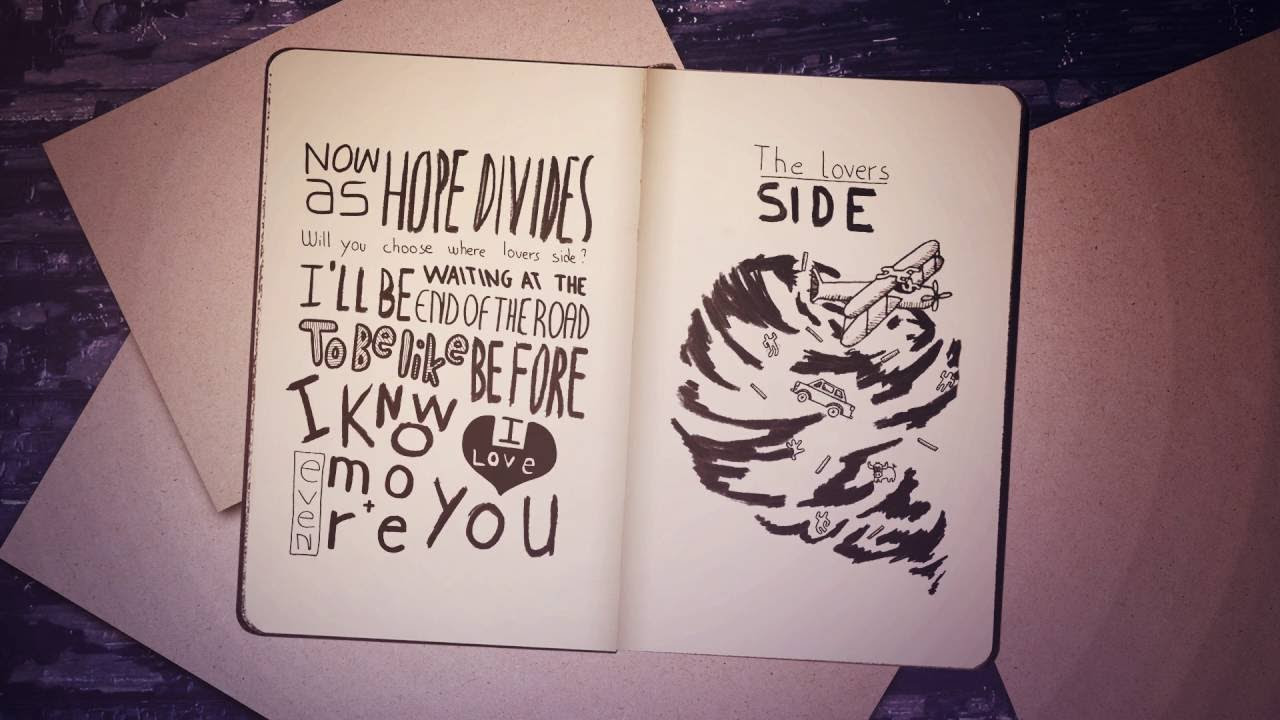 NOW
as HOPE DIVIDES
Will you choose where lovers side?
I'LL BE WAITING AT THE
END OF THE ROAD
To Be like BEFORE
I KNOW
even more
I Love
YOU
The lovers
SIDE